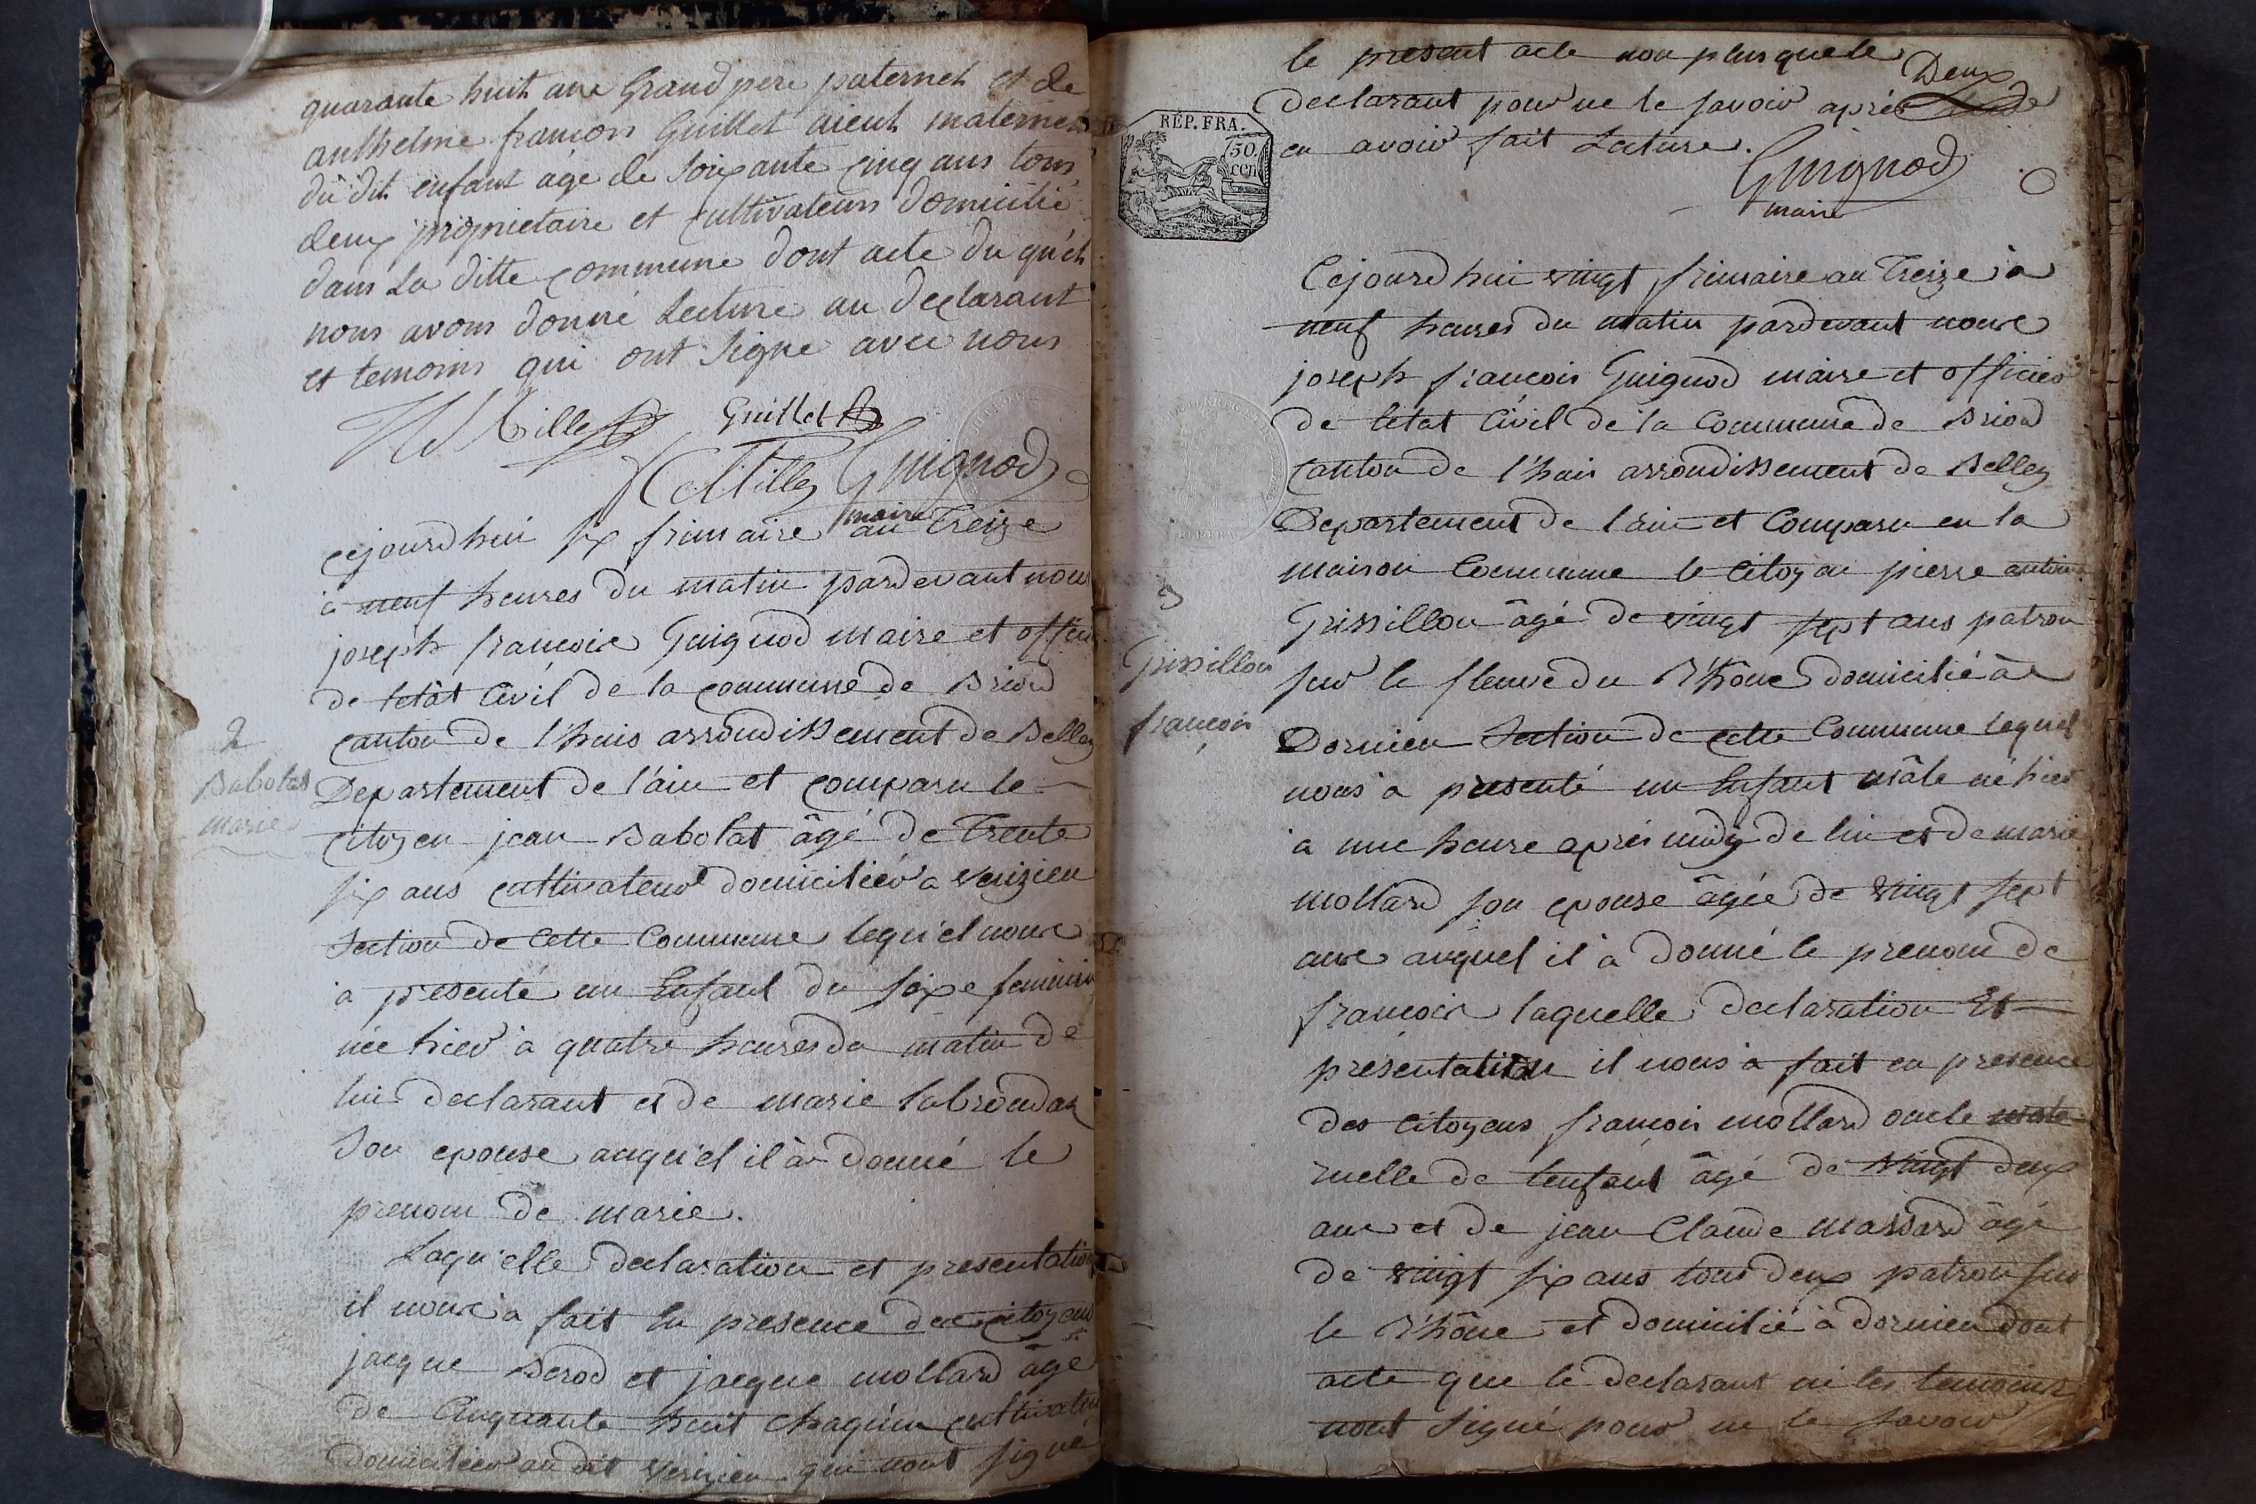 quarante huit ans Grand pere paternel et de
anthelme françois Guillet aieul maternel
du dit enfant agé de soixante cinq ans tous
deux proprietaire et cultivateurs domicilié
dans La ditte commune dont acte du quel
nous avons donné lecture au declarant
et temoins qui ont signe avec nous
Guillet
Guignod
maire
cejourdhui six frimaire an Treize
à neuf heures du matin pardevant nous
joseph françois Guignod maire et officier
de letât Civil de la commune de Briord
canton de l'huis arrondissement de Belley
Departement de l'ain et comparu le
Citoyen jean Babolat âgé de Trente
six ans cultivateur domiciliér a verizieu
Section de Cette Commune lequel nous
a presenté un Enfant du sexe feminin
née hier à quatre heures du matin de
lui declarant et de marie
Son epouse auquel il à donné le
prenom de marie.
Laquelle declaration et presentation
il nous a fait En presence des citoyens
jacque Berod et jacque mollard âgé
de Cinquante huit chaqúun cultivateur
Domiciliér au dit verizieu qui n'ont signe
2
Babolat
marie
le present acte non plus que le
declarant pour ne le savoir aprés Deux de
en avoir fait Lecture.
Guignod
maire
RÉP. FRA.
50.
cen
Cejourdhui vingt frimaire an Treize à
neuf heures du matin pardevant nous
joseph françois Guignod maire et officier
de letat Civil de la Commune de Briord
Canton de l'huis arrondissement de Belley
Departement de l'ain et Comparu en la
maison Commune le Citoyen pierre antoine
Grissillon âgé de vingt sept ans patron
sur le fleuve du Rhône domicilié à
Dornieu Section de cette Commune lequel
nous à presenté un Enfant mâle né hier
à une heure aprés midy de lui et de marie
mollard son epouse âgée de vingt sept
ans auquel il à donné le prenom de
françois laquelle declaration Et
présentation il nous à fait en presence
des Citoyens françois mollard oncle mate-
rnelle de lenfant âgé de vingt deux
ans et de jean Claude massard âgé
de vingt six ans tous deux patron sur
le Rhône et domicilié à dornieu dont
acte que le declarant ni les temoins
n'ont signé pour ne le savoir
3
Grissillon
françois